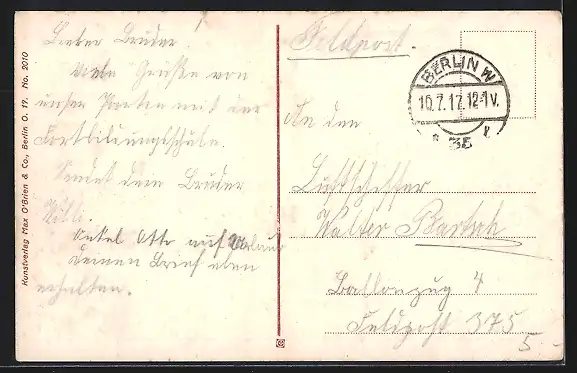 Kunstverlag Max O'Brien & Co., Berlin O. 17. No. 2010
Lieber Bruder.
Viele Grüße von
unser Partie mit der
Fortbildungsschule.
Sendet dein Bruder
Willi.
Onkel Otto auf Urlaub
Deinen Brief eben
erhalten.
Feldpost.
BERLIN W
10.7.17. 12-1 V.
* 35 k
An den
Luftschiffer
Walter Bartsch
Ballonzug 4
Feldpost 375
5.-